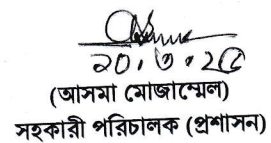 ২০.৩.২৫
(আসমা মোজাম্মেল)
সহকারী পরিচালক (প্রশাসন)